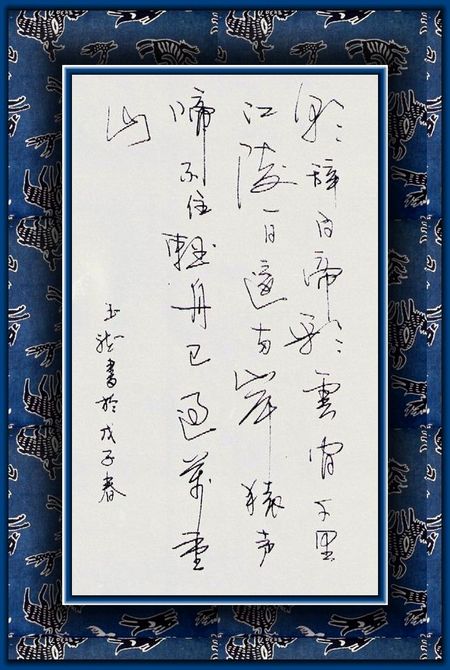 朝辞白帝彩雲間千里
江陵一日還兩岸猿声
啼不住輕舟已過萬重
山
玉龙書於戊子春